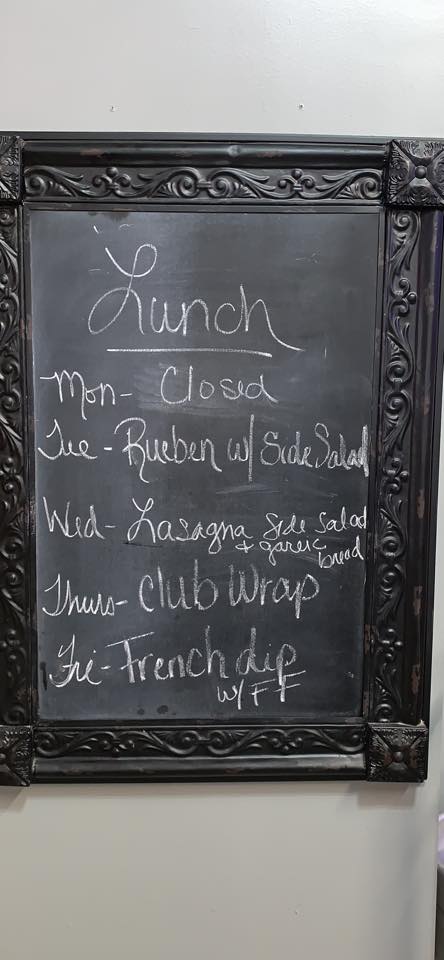 Lunch
Mon- Closed
Tue - Rueben w/ Side Salad
Wed- Lasagna Side Salad
+ garlic bread
Thurs- Club Wrap
Fri- French dip
w/ FF